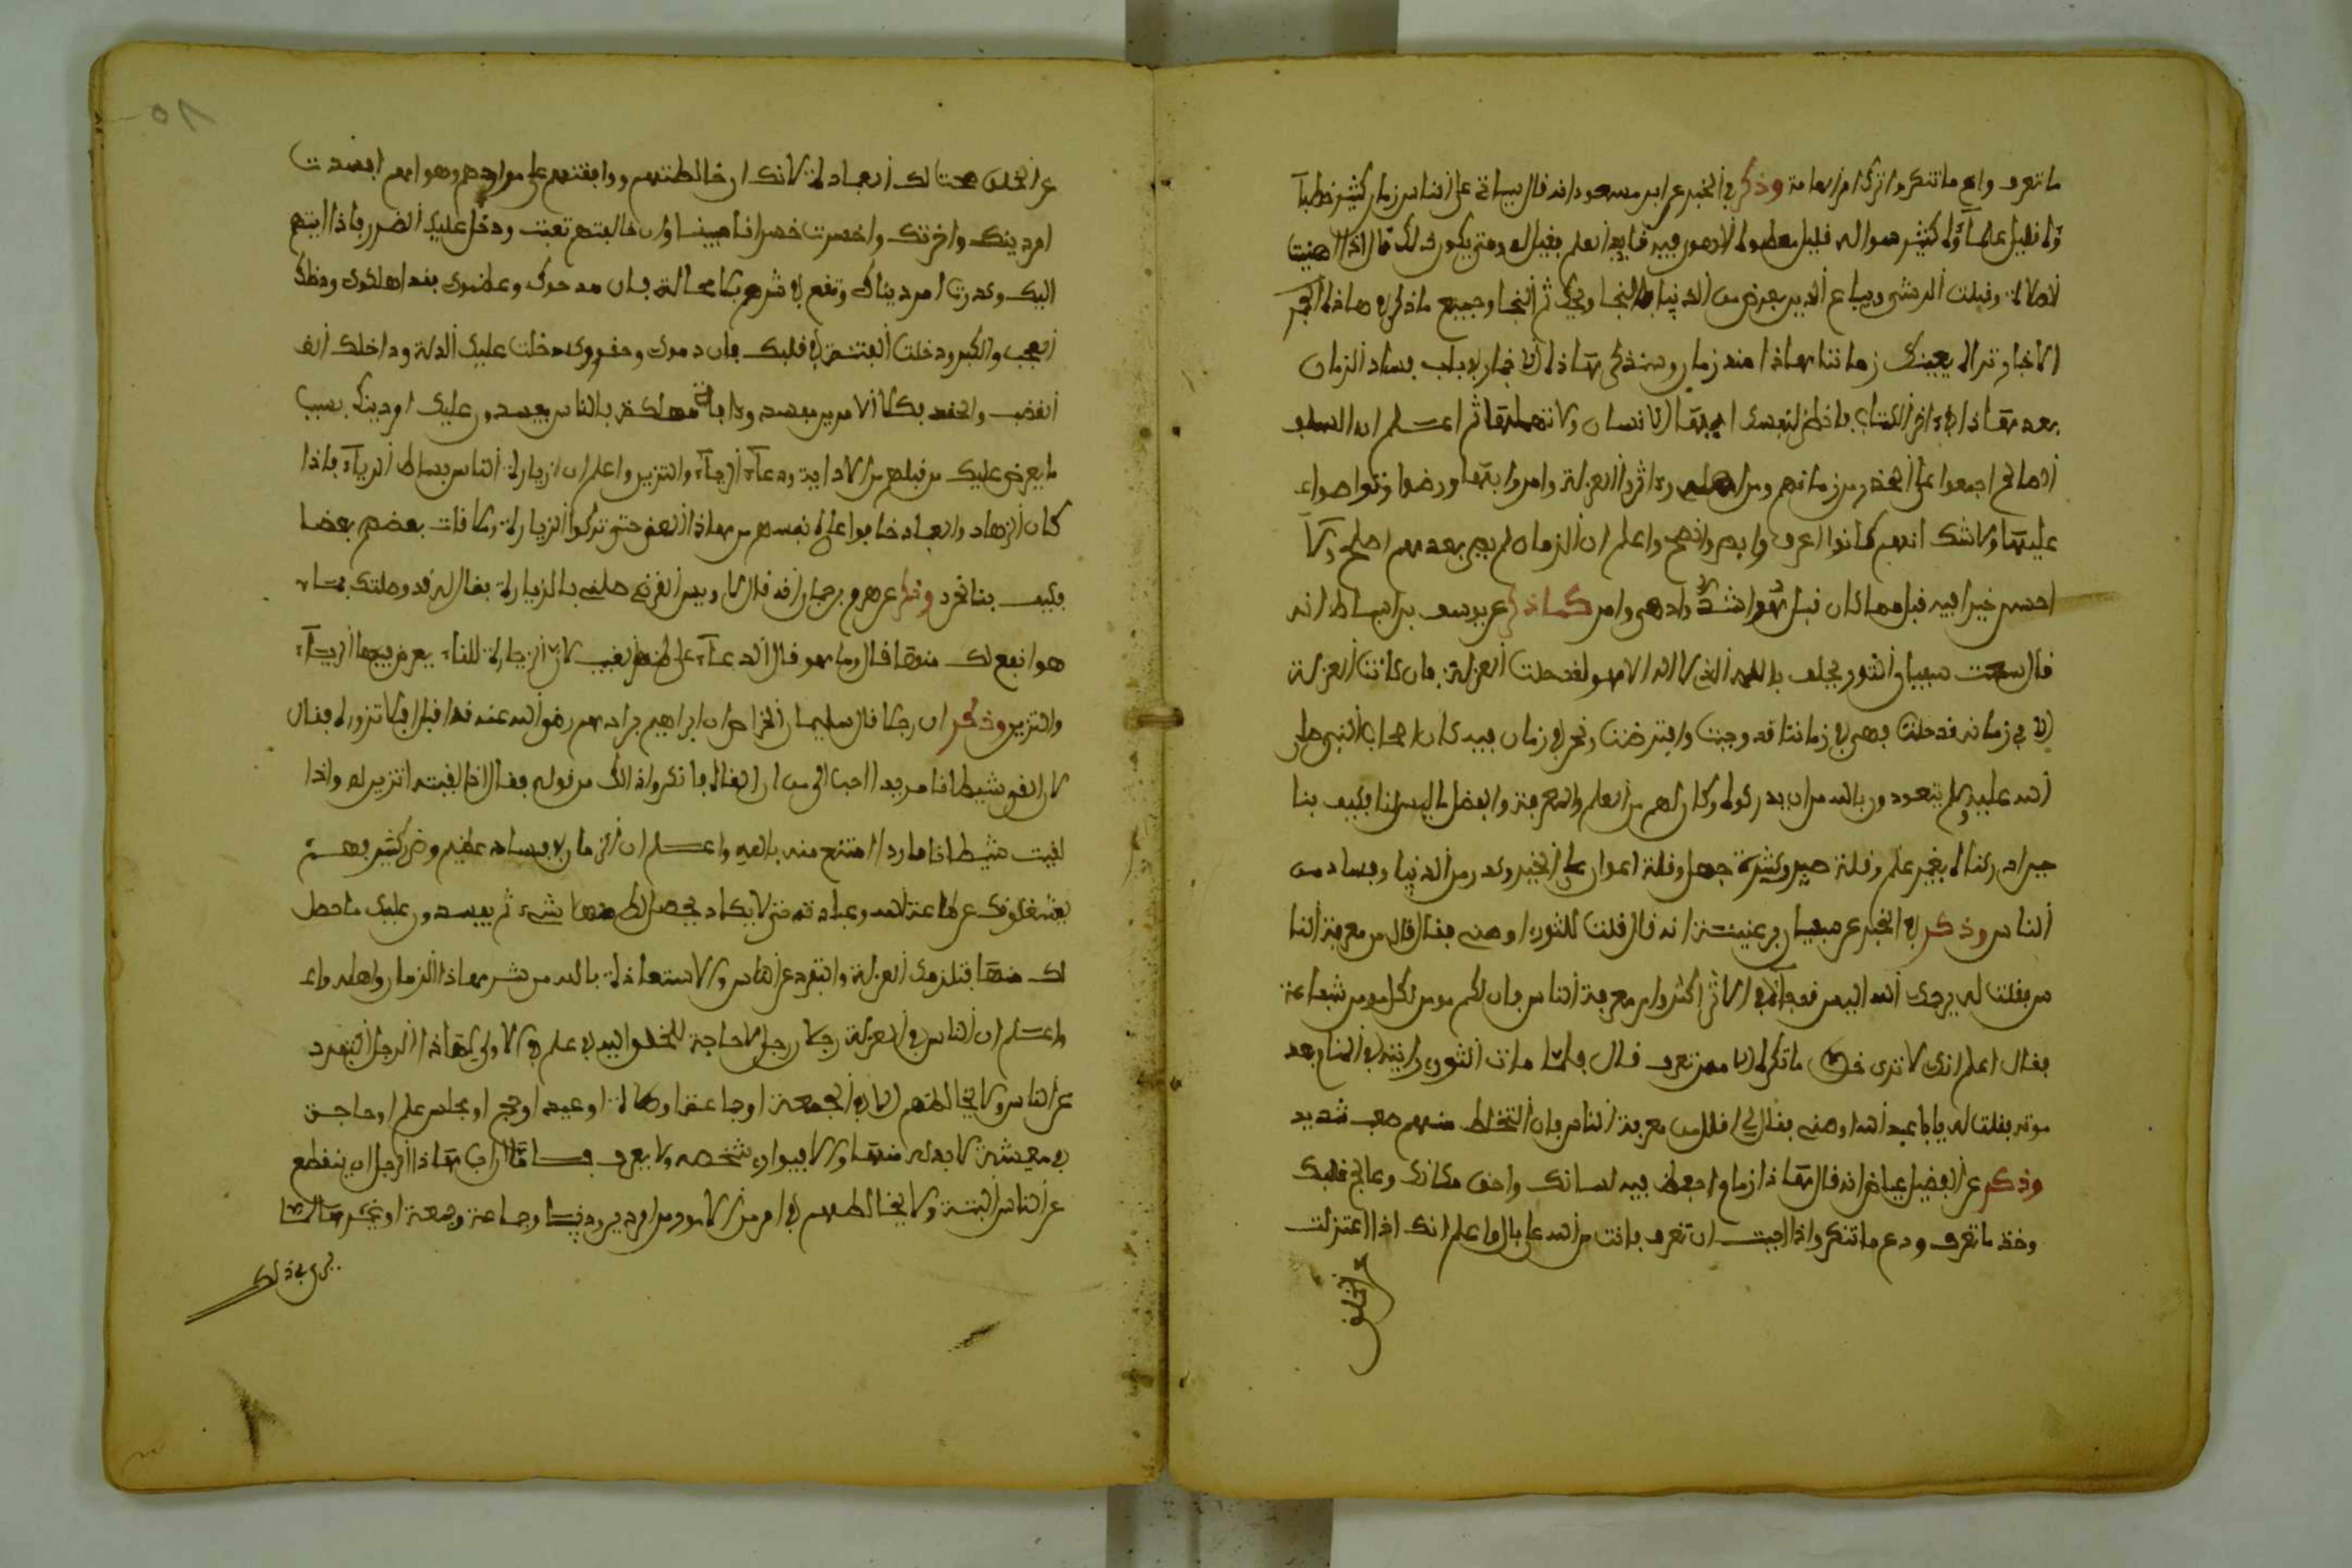 ما تعرف واع ما تنكر واترك امر العامة وذكر في الخبر عن ابن مسعود انه قال سياتي على الناس زمان كثير خطباؤه
قليل علماؤه كثير سواله قليل معطوه الهوى فيه قايد العلم فقيل له ومتى يكون ذلك قال اذا اميتت
الصلاة وقبلت الرشى ويباع الدين بعرض من الدنيا فالنجا ويحك ثم النجا وجميع ما ذكر في هاذه
الاخبار تراه بعينك في زماننا هاذا منذ زمان وسنذكر هاذه الاخبار في باب فساد الزمان
بعد هاذا في اخر الكتاب فانظر لنفسك ايها الانسان ولا تهملها ثم اعلم ان السلف
الصالح اجمعوا على الحذر من زمانهم ومن اهله واثروا العزلة وامروا بها ورضوا وتواصوا
عليها ولا شك انهم كانوا اعرف وابصر وانصح واعلم ان الزمان لم يصر بعدهم اصلح ولا
احسن خيرا فيه قبل مما كان قبل هو اشد وادهى وامر كما ذكر عن يوسف بن اسباط انه
قال سمعت سفيان الثوري يحلف بالله الذي لا اله الا هو لقد حلت العزلة فان كانت العزلة
في زمانه قد حلت فهي في زماننا قد وجبت وافترضت ونحن في زمان فيه كان اصحاب النبي صلى
الله عليه وسلم يتعوذون بالله من ان يدركوه وكان لهم من العلم والمعرفة والفضل ما ليس لنا فكيف بنا
حين ادركناه بغير علم وقلة صبر وكثرة جهل وقلة اعوان على الخير وكدر من الدنيا وفساد من
الناس وذكر في الخبر عن سفيان بن عيينة انه قال قلت للثوري اوصني فقال اقلل من معرفة النا
س فقلت له يرحمك الله اليس قد جا في الاثر اكثروا من معرفة الناس فان لكم مومن لكل مومن شفاعة
فقال اعلم انك لا ترى ما تكره الا ممن تعرف قال فلما مات الثوري رايته في المنام بعد
موته فقلت له يا ابا عبد الله اوصني فقال لي اقلل من معرفة الناس فان التخلط منهم صعب شديد
وذكر عن الفضيل بن عياض انه قال هاذا زمان احفظ فيه لسانك واخف مكانك وعالج قلبك
وخذ ما تعرف ودع ما تنكر واذا احببت ان تعرف فانت من الله على بال واعلم انك اذا اعتزلت
عن الخلق
٥١
عن الخلق صحت لك العبادة لانك ان خالطتهم ووافقتهم على مرادهم وهواهم افسدت
امر دينك واخرتك وخسرت خسرانا مبينا وان خالفتهم تعبت ودخل عليك الضرر باذايتهم
اليك وكدرت امر دنياك وتقع في شرهم لا محالة فان مدحوك وعظموك فقد اهلكوك ودخلك
العجب والكبر ودخلت الفتنة في قلبك فان ذموك وحقروك دخلت عليك الذلة وداخلك
الغضب والحقد فكلا الامرين مفسد مهلكة فالناس يفسدون عليك امر دينك بسبب
ما يعرض عليك من قبلهم من الاذاية ودعاء الرياء والتزين واعلم ان زيارة الناس بساط الرياء فاذا
كان الزهاد والعباد خافوا على انفسهم من هاذا المعنى حتى تركوا الزيارة وملاقات بعضهم بعضا
فكيف بنا نحن وذكر عن هرم بن حيان انه قال لاويس القرني صلني بالزيارة فقال له قد وصلتك بما
هو انفع لك منها قال وما هو قال الدعاء على ظهر الغيب لان الزيارة للقاء يعرض فيها الرياء
والتزين وذكر ان رجلا قال لسليمان الخواص ان ابراهيم بن ادهم رضي الله عنه قد اقبل افلا تزوره فقال
لان القى شيطانا مريدا احب الي من ان القاه فانكروا ذلك من قوله فقال اذا لقيته اتزين له واذا
لقيت شيطانا ماردا امتنع منه بالله واعلم ان الزمان في فساد عظيم وضر كثير فهم
يشغلونك عن طاعة الله وعبادته حتى لا يكاد يحصل لك منها شيء ثم يفسدون عليك ما حصل
لك منها فتلزمك العزلة والتفرد عن الناس والاستعاذة بالله من شر هاذا الزمان واهله
واعلم ان الناس في العزلة رجلان رجل لا حاجة للخلق اليه في علم فالاولى لهاذا الرجل التفرد
عن الناس ولا يخالطهم الا في الجمعة او جماعة او صلاة او عيد او حج او مجلس علم او حاجة
في معيشة لا بد له منها والا فيواري شخصه ولا يعرف فاذا اراد هاذا الرجل ان ينقطع
عن الناس البتة ولا يخالطهم في امر من الامور من امر دين ودنيا وجماعة وجمعة او غير
يجري في ذلك